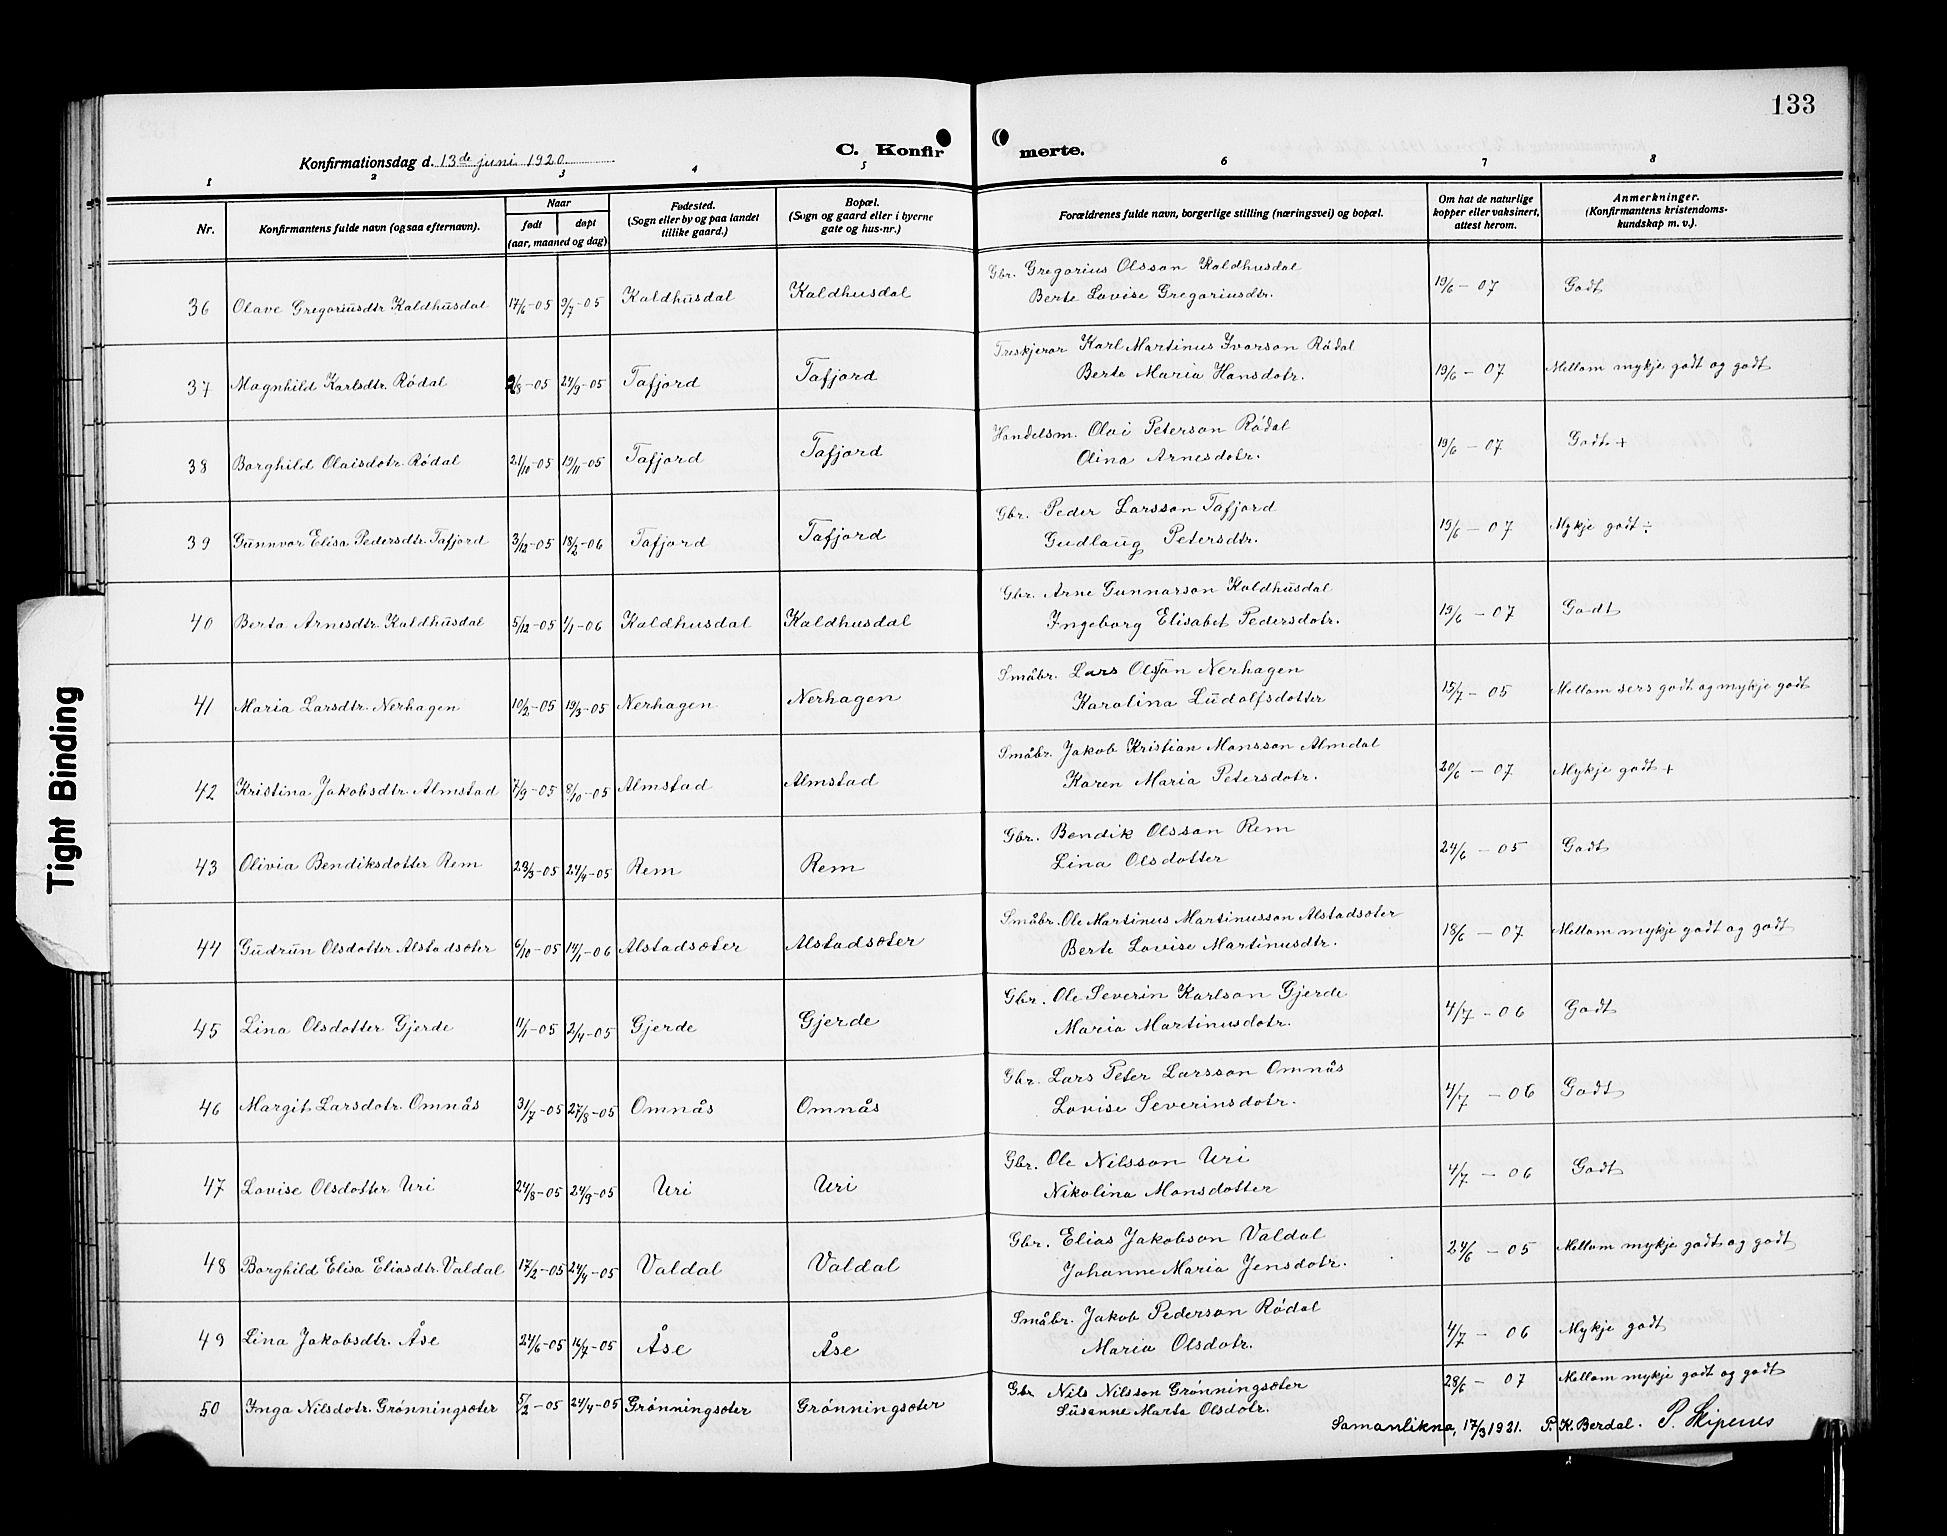 133
C. Konfirmerte.
Konfirmationsdag d. 13de juni 1920
1 2 3 4 5 6 7 8
Nr. | Konfirmantens fulde navn (og saa efternavn). | Naar født døpt (aar, maaned og dag) | Fødested. (Sogn eller by og paa landet tillike gaard.) | Bopæl. (Sogn og gaard eller i byerne gate og hus-nr.) | Forældrenes fulde navn, borgerlige stilling (næringsvei) og bopæl. | Om hat de naturlige kopper eller vaksinert, attest herom. | Anmerkninger. (Konfirmantens kristendoms-kundskap m. v.).
36 Olave Gregoriusdtr Kaldhusdal 17/6-05 9/7-05 Kaldhusdal Kaldhusdal Gbr. Gregorius Olsson Kaldhusdal
Berte Lovise Gregoriusdtr. 19/6 - 07 Godt
37 Magnhild Karlsdtr. Rødal 2/8-05 24/9-05 Tafjord Tafjord Treskjerar Karl Martinus Ivarson Rødal
Berte Maria Hansdotr. 19/6 - 07 Mellom mykje godt og godt
38 Borghild Olaisdotr. Rødal 21/10-05 19/11-05 Tafjord Tafjord Handelsm. Olai Peterson Rødal
Olina Arnesdotr. 19/6 - 07 Godt +
39 Gunnvor Elisa Pedersdtr. Tafjord 3/12-05 18/2-06 Tafjord Tafjord Gbr. Peder Larsson Tafjord
Gudlaug Petersdtr. 19/6 - 07 Mykje godt ÷
40 Berta Arnesdtr. Kaldhusdal 5/12-05 1/1-06 Kaldhusdal Kaldhusdal Gbr. Arne Gunnarson Kaldhusdal
Ingeborg Elisabet Pedersdotr. 19/6 - 07 Godt
41 Maria Larsdtr. Nerhagen 10/2-05 19/3-05 Nerhagen Nerhagen Småbr. Lars Olsson Nerhagen
Karolina Ludolfsdotter 15/7 - 05 Mellom sers godt og mykje godt
42 Kristina Jakobsdtr. Almstad 7/9-05 8/10-05 Almstad Almstad Småbr. Jakob Kristian Monsson Almdal
Karen Maria Petersdotr. 20/6 - 07 Mykje godt +
43 Olivia Bendiksdotter Rem 23/3-05 24/4-05 Rem Rem Gbr. Bendik Olsson Rem
Lina Olsdotter 24/6 - 05 Godt
44 Gudrun Olsdotter Alstadsæter 6/10-05 14/1-06 Alstadsæter Alstadsæter Småbr. Ole Martinus Martinusson Alstadsæter
Berte Lovise Martinusdtr. 18/6 - 07 Mellom mykje godt og godt
45 Lina Olsdotter Gjerde 11/1-05 2/4-05 Gjerde Gjerde Gbr. Ole Severin Karlson Gjerde
Maria Martinusdotr. 4/7 - 06 Godt
46 Margit Larsdotr. Omnås 31/7-05 27/8-05 Omnås Omnås Gbr. Lars Peter Larsson Omnås
Lovise Severinsdotr. 4/7 - 06 Godt
47 Lovise Olsdotter Uri 24/8-05 24/9-05 Uri Uri Gbr. Ole Nilsson Uri
Nikolina Monsdotter 4/7 - 06 Godt
48 Borghild Elisa Eliasdtr. Valdal 17/2-05 24/4-05 Valdal Valdal Gbr. Elias Jakobson Valdal
Johanne Maria Jensdotr. 24/6 - 05 Mellom mykje godt og godt
49 Lina Jakobsdtr. Åse 24/6-05 16/7-05 Åse Åse Småbr. Jakob Pederson Rødal
Maria Olsdotr. 4/7 - 06 Mykje godt
50 Inga Nilsdotr. Grønningsæter 5/2-05 24/4-05 Grønningsæter Grønningsæter Gbr. Nils Nilsson Grønningsæter
Susanne Marta Olsdotr. 28/6 - 07 Mellom mykje godt og godt
Samanlikna, 17/3 1921. P. K. Berdal. P. Skipenes
Tight Binding